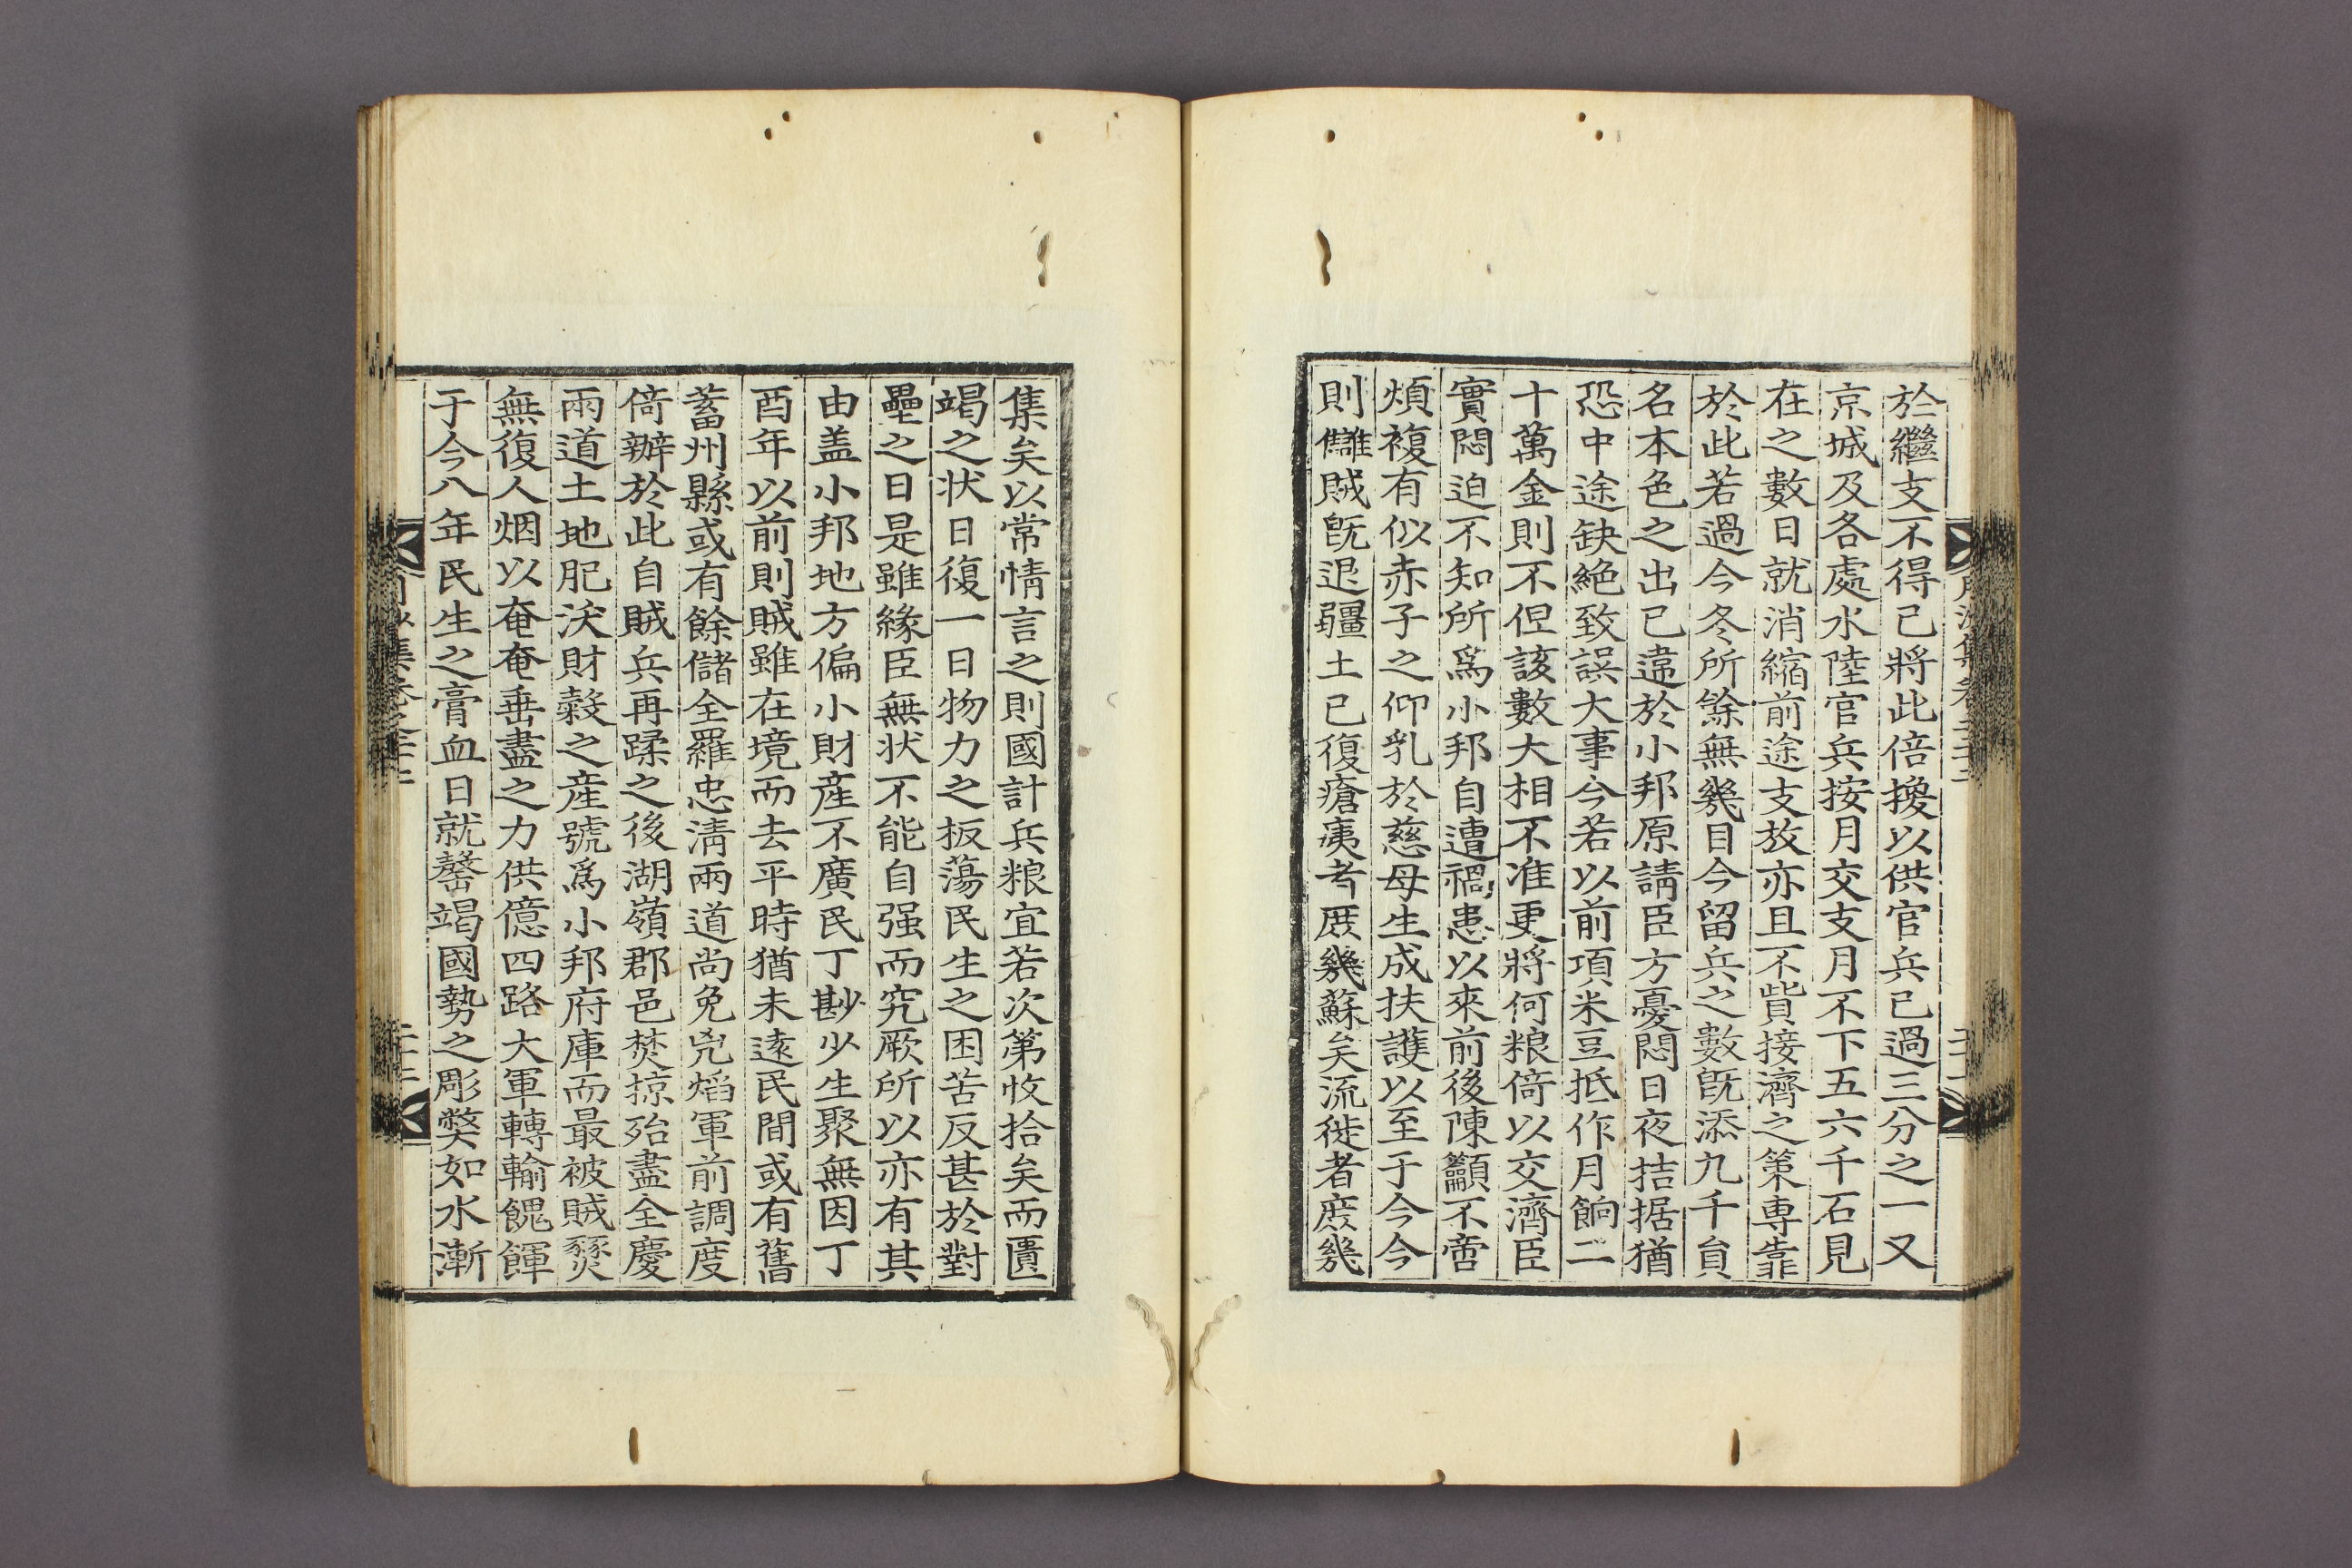 於繼支不得已將此倍擾以供官兵已過三分之一又
京城及各處水陸官兵按月交支月不下五六千石見
在之數日就消縮前途支放亦且不貲接濟之策專靠
於此若過今冬所餘無幾目今留兵之數旣添九千貟
名本色之出已違於小邦原請臣方憂悶日夜拮据猶
恐中途缺絶致誤大事今若以前項米豆抵作月餉二
十萬金則不但該數大相不准更將何粮倚以交濟臣
實悶迫不知所爲小邦自遭禍患以來前後陳籲不啻
煩複有似赤子之仰乳於慈母生成扶護以至于今今
則讎賊旣退疆土已復瘡痍者庶幾蘇矣流徙者庶幾
集矣以常情言之則國計兵粮宜若次第收拾矣而匱
竭之状日復一日物力之板蕩民生之困苦反甚於對
壘之日是雖緣臣無状不能自强而究厥所以亦有其
由盖小邦地方偏小財産不廣民丁尠少生聚無因丁
酉年以前則賊雖在境而去平時猶未遠民間或有舊
蓄州縣或有餘儲全羅忠淸兩道尚免兇焰軍前調度
倚辦於此自賊兵再蹂之後湖嶺郡邑焚掠殆盡全慶
兩道土地肥沃財穀之産號爲小邦府庫而最被賊燹
無復人烟以奄奄垂盡之力供億四路大軍轉輸餽餫
于今八年民生之膏血日就罄竭國勢之彫獘如水漸